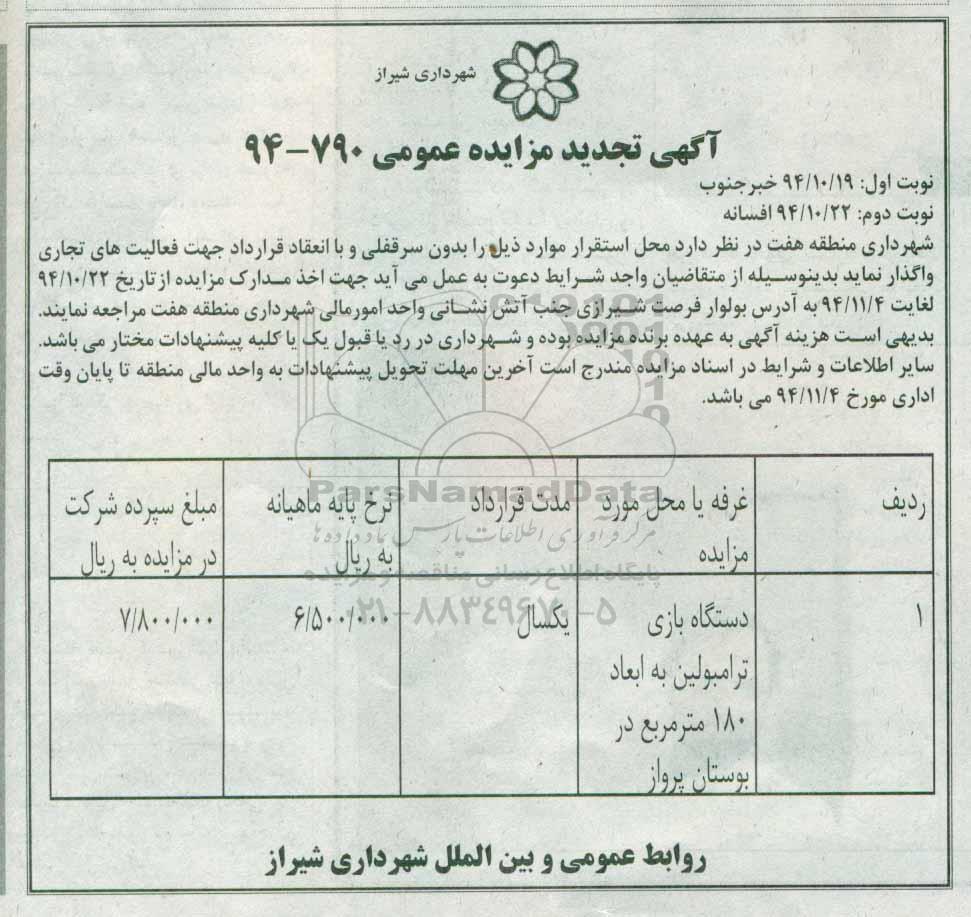 شهرداری شیراز
آگهی تجدید مزایده عمومی ۷۹۰-۹۴
نوبت اول: ۹۴/۱۰/۱۹ خبرجنوب
نوبت دوم: ۹۴/۱۰/۲۲ افسانه
شهرداری منطقه هفت در نظر دارد محل استقرار موارد ذیل را بدون سرقفلی و با انعقاد قرارداد جهت فعالیت های تجاری
واگذار نماید بدینوسیله از متقاضیان واجد شرایط دعوت به عمل می آید جهت اخذ مدارک مزایده از تاریخ ۹۴/۱۰/۲۲
لغایت ۹۴/۱۱/۴ به آدرس بولوار فرصت شیرازی جنب آتش نشانی واحد امورمالی شهرداری منطقه هفت مراجعه نمایند.
بدیهی است هزینه آگهی به عهده برنده مزایده بوده و شهرداری در رد یا قبول یک یا کلیه پیشنهادات مختار می باشد.
سایر اطلاعات و شرایط در اسناد مزایده مندرج است آخرین مهلت تحویل پیشنهادات به واحد مالی منطقه تا پایان وقت
اداری مورخ ۹۴/۱۱/۴ می باشد.
ردیف
غرفه یا محل مورد
مزایده
مدت قرارداد
نرخ پایه ماهیانه
به ریال
مبلغ سپرده شرکت
در مزایده به ریال
۱
دستگاه بازی
ترامبولین به ابعاد
۱۸۰ مترمربع در
بوستان پرواز
یکسال
۶/۵۰۰/۰۰۰
۷/۸۰۰/۰۰۰
ParsNamadData
مرکز فرآوری اطلاعات پارس نماد داده ها
پایگاه اطلاع رسانی مناقصه و مزایده
۰۲۱-۸۸۳۴۹۶۷۰-۵
روابط عمومی و بین الملل شهرداری شیراز